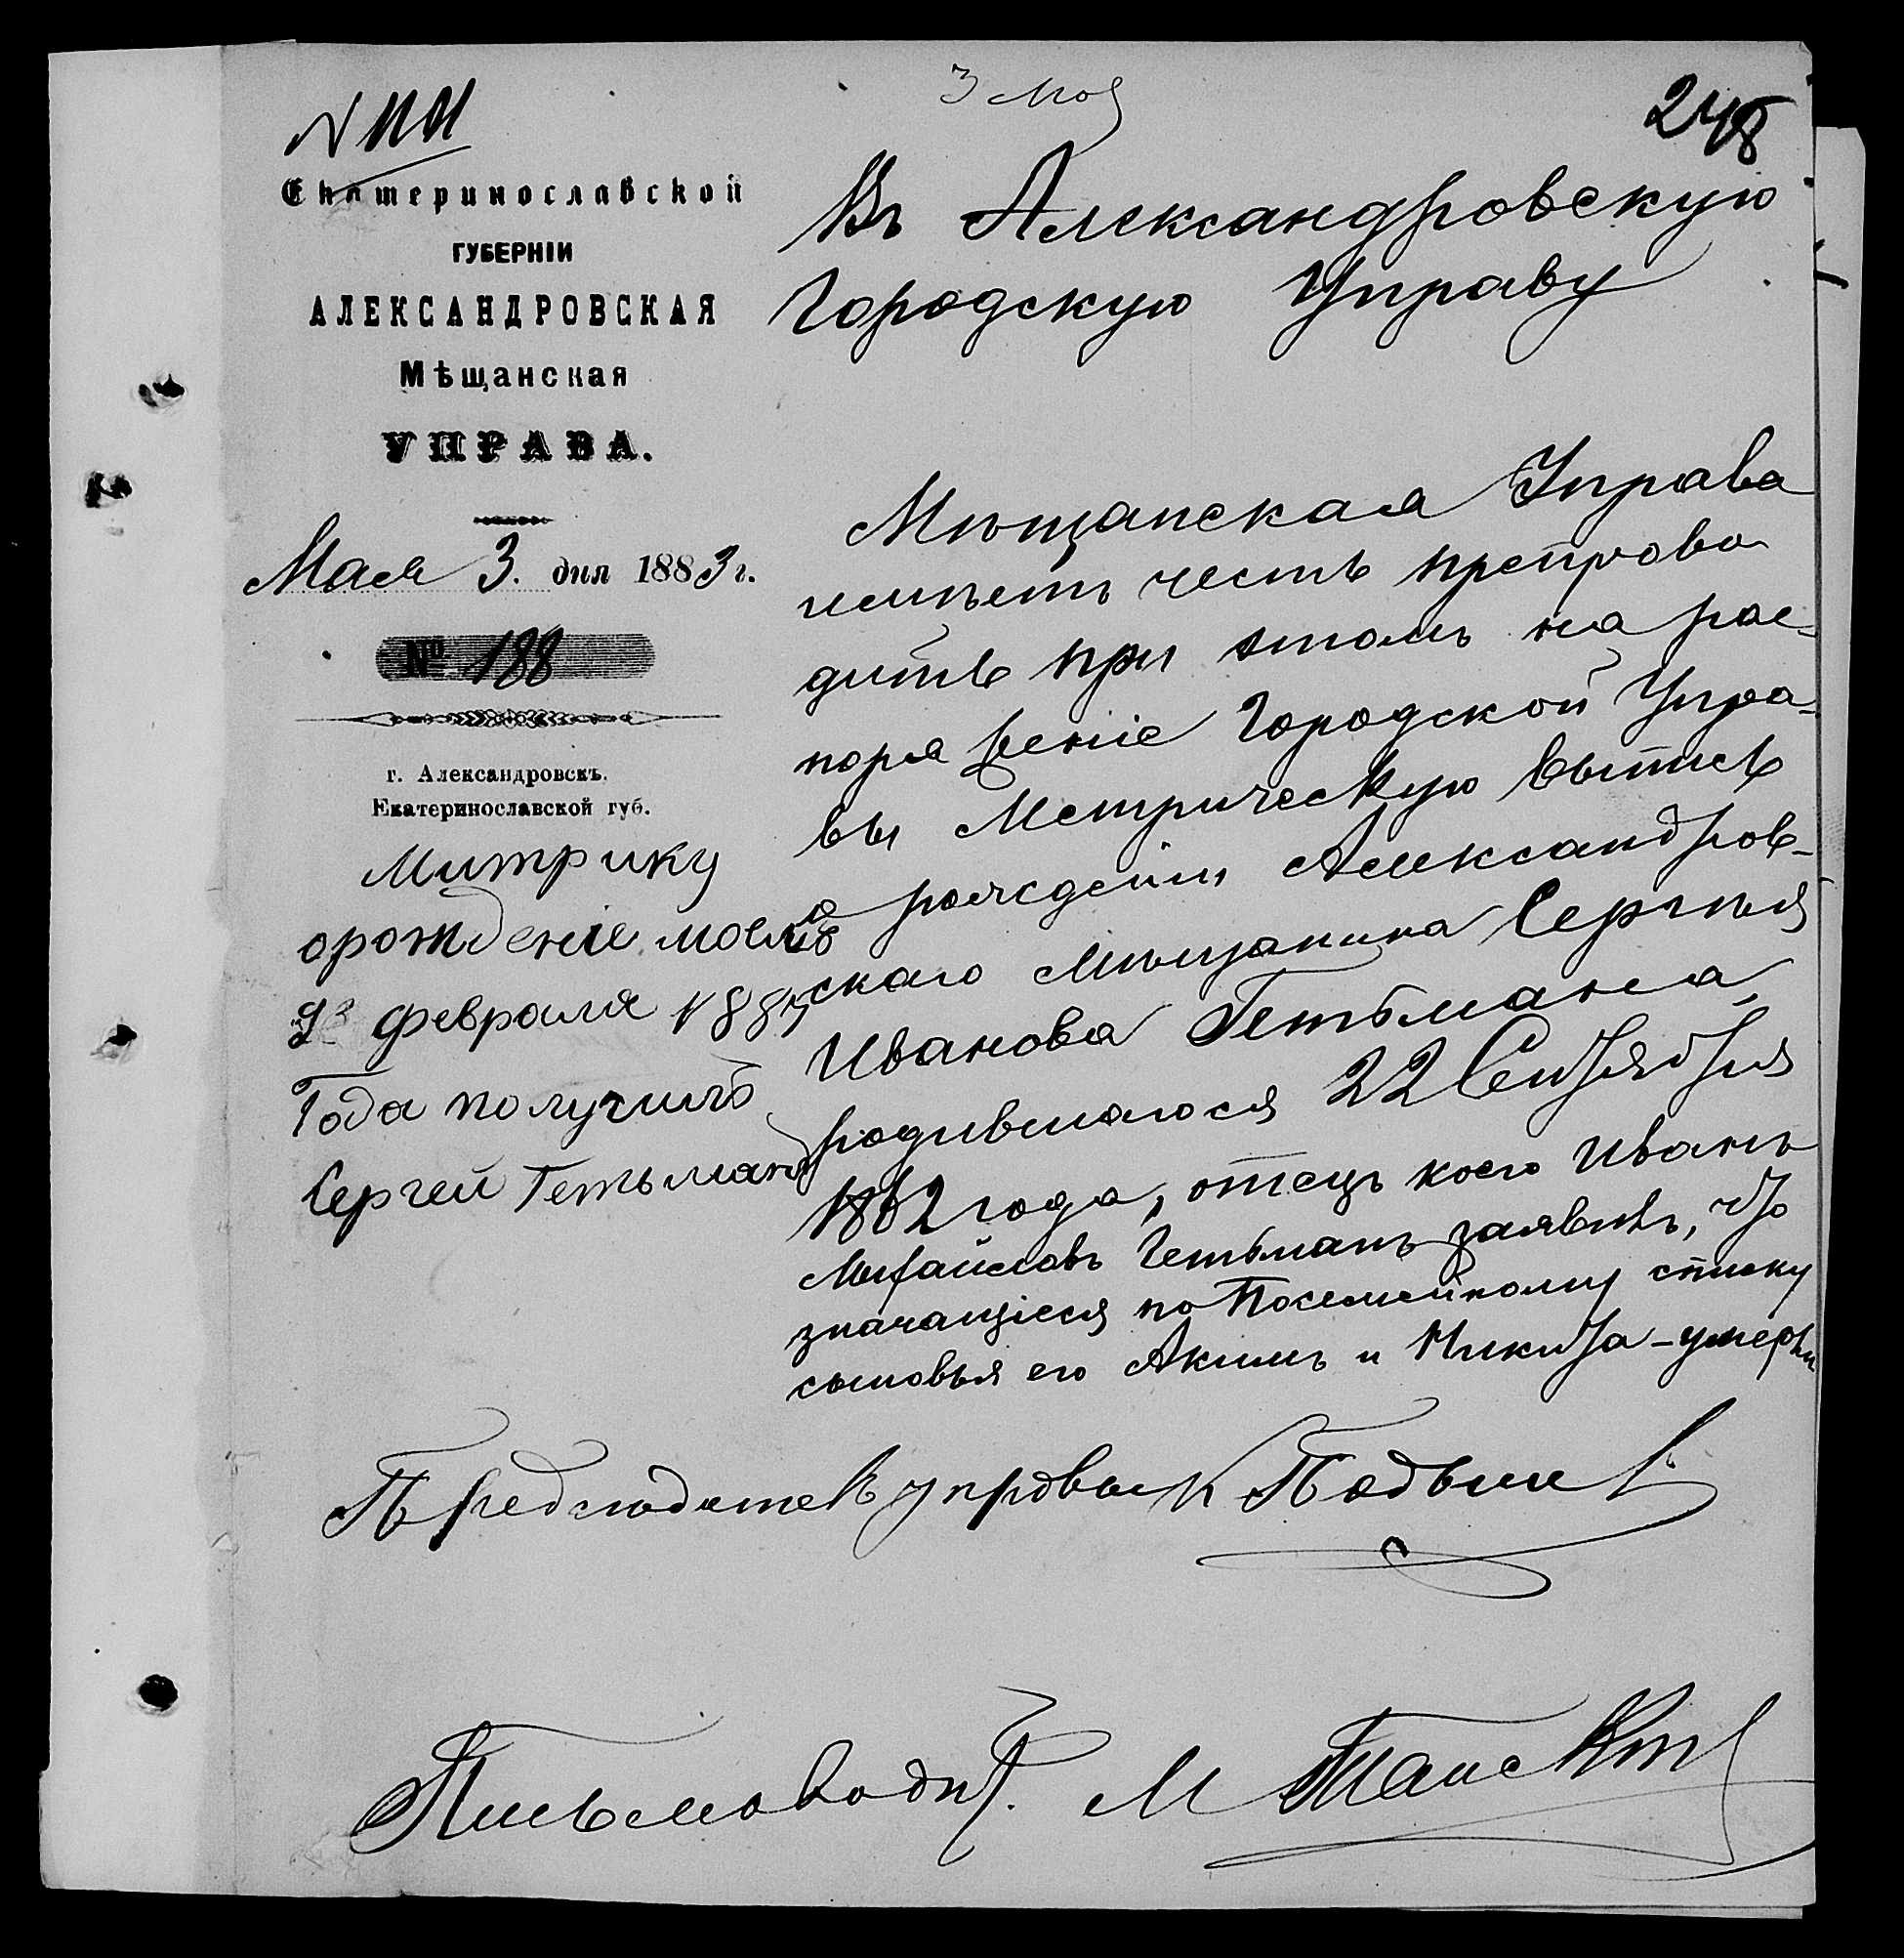 3 мая
248
Екатеринославской
ГУБЕРНІИ
АЛЕКСАНДРОВСКАЯ
Мѣщанская
УПРАВА.
Мая 3. дня 1883 г.
№ 188
г. Александровскъ.
Екатеринославской губ.
Митрику
орожденіе моемъ
февраля
Года получилъ
Сергей Гетьманъ
Въ Александровскую
Городскую Управу
Мѣщанская Управа
имѣетъ честь препрово
дить при этомъ на рас-
поряженіе Городской Упра-
вы Метрическую выпись
о рожденіи Александров-
скаго Мѣщанина Сергѣя
Иванова Гетьмана,
родившагося 22 Сентября
1862 года, отецъ коего Иванъ
Михайловъ Гетьманъ заявилъ, что
значащіеся по Посемейному списку
сыновья его Акимъ и Никита - умерли
Предсѣдатель управы
Письмоводит. М